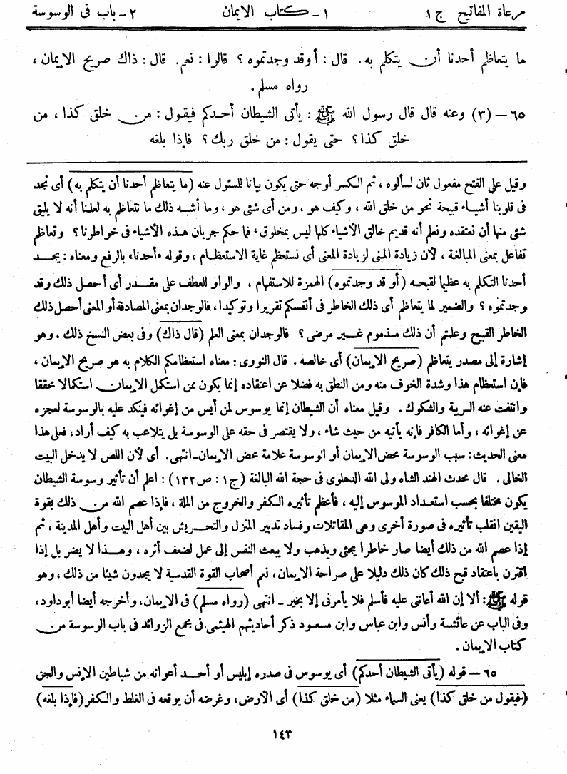 مرعاة المفاتيح ج ١ ١ - كتاب الإيمان ٢ - باب فى الوسوسة
ما يتعاظم أحدنا أن يتكلم به. قال: أو قد وجدتموه؟ قالوا: نعم. قال: ذاك صريح الإيمان،
رواه مسلم.
٦٥ - (٣) وعنه قال قال رسول الله ﷺ: يأتى الشيطان أحدكم فيقول: من خلق كذا، من
خلق كذا؟ حتى يقول: من خلق ربك؟ فإذا بلغه
وقيل على الفتح مفعول ثان لسألوه، ثم الكسر أوجه حتى يكون بيانا للمسئول عنه (ما يتعاظم أحدنا أن يتكلم به) أى نجد
فى قلوبنا أشياء قبيحة نحو من خلق الله، وكيف هو، ومن أى شئ هو، وما أشبه ذلك ما نتعاظم به لعلمنا أنه لا يليق
شئ منها أن نعتقده ونعلم أنه قديم خالق الأشياء كلها ليس بمخلوق، فما حكم جريان هذه الأشياء فى خواطرنا؟ وتعاظم
تفاعل بمعنى المبالغة، لأن زيادة المبنى لزيادة المعنى أى نستعظم غاية الاستعظام، وقوله «أحدنا» بالرفع ومعناه: يجد
أحدنا التكلم به عظيما لقبحه (أو قد وجدتموه) الهمزة للاستفهام، والواو للعطف على مقدر أى أحصل ذلك وقد
وجدتموه؟ والضمير لما يتعاظم أى ذلك الخاطر فى أنفسكم تقريرا وتوكيدا، فالوجدان بمعنى المصادفة أو المعنى أحصل ذلك
الخاطر القبيح وعلمتم أن ذلك مذموم غير مرضى؟ فالوجدان بمعنى العلم (قال ذاك) وفى بعض النسخ ذلك، وهو
إشارة إلى مصدر يتعاظم (صريح الإيمان) أى خالصه. قال النووى: معناه استعظامكم الكلام به هو صريح الإيمان،
فإن استعظام هذا وشدة الخوف منه ومن النطق به فضلا عن اعتقاده إنما يكون ممن استكمل الإيمان استكمالا محققا
وانتفت عنه الريبة والشكوك. وقيل معناه أن الشيطان إنما يوسوس لمن أيس من إغوائه فينكد عليه بالوسوسة لعجزه
عن إغوائه، وأما الكافر فإنه يأتيه من حيث شاء، ولا يقتصر فى حقه على الوسوسة بل يتلاعب به كيف أراد، فعلى هذا
معنى الحديث: سبب الوسوسة محض الإيمان أو الوسوسة علامة محض الإيمان - انتهى. أى لأن اللص لا يدخل البيت
الخالى. قال محدث الهند الشاه ولى الله الدهلوى فى حجة الله البالغة (ج ١: ص ١٣٢): اعلم أن تأثير وسوسة الشيطان
يكون مختلفا بحسب استعداد الموسوس إليه، فأعظم تأثيره الكفر والخروج من الملة، فإذا عصم الله من ذلك بقوة
اليقين انقلب تأثيره فى صورة أخرى وهى المقاتلات وفساد تدبير المنزل والتحريش بين أهل البيت وأهل المدينة، ثم
إذا عصم الله من ذلك أيضا صار خاطرا يجئ ويذهب ولا يبعث النفس إلى عمل لضعف أثره، وهذا لا يضر بل إذا
اقترن باعتقاد قبح ذلك كان ذلك دليلا على صراحة الإيمان، نعم أصحاب القوة القدسية لا يجدون شيئا من ذلك، وهو
قوله ﷺ: ألا إن الله أعاننى عليه فأسلم فلا يأمرنى إلا بخير - انتهى (رواه مسلم) فى الإيمان، وأخرجه أيضا أبو داود،
وفى الباب عن عائشة وأنس وابن عباس وابن مسعود ذكر أحاديثهم الهيثمى فى مجمع الزوائد فى باب الوسوسة من
كتاب الإيمان.
٦٥ - قوله (يأتى الشيطان أحدكم) أى يوسوس فى صدره إبليس أو أحد أعوانه من شياطين الإنس والجن
(فيقول من خلق كذا) يعنى السماء مثلا (من خلق كذا) أى الأرض، وغرضه أن يوقعه فى الغلط والكفر (فإذا بلغه)
١٤٣